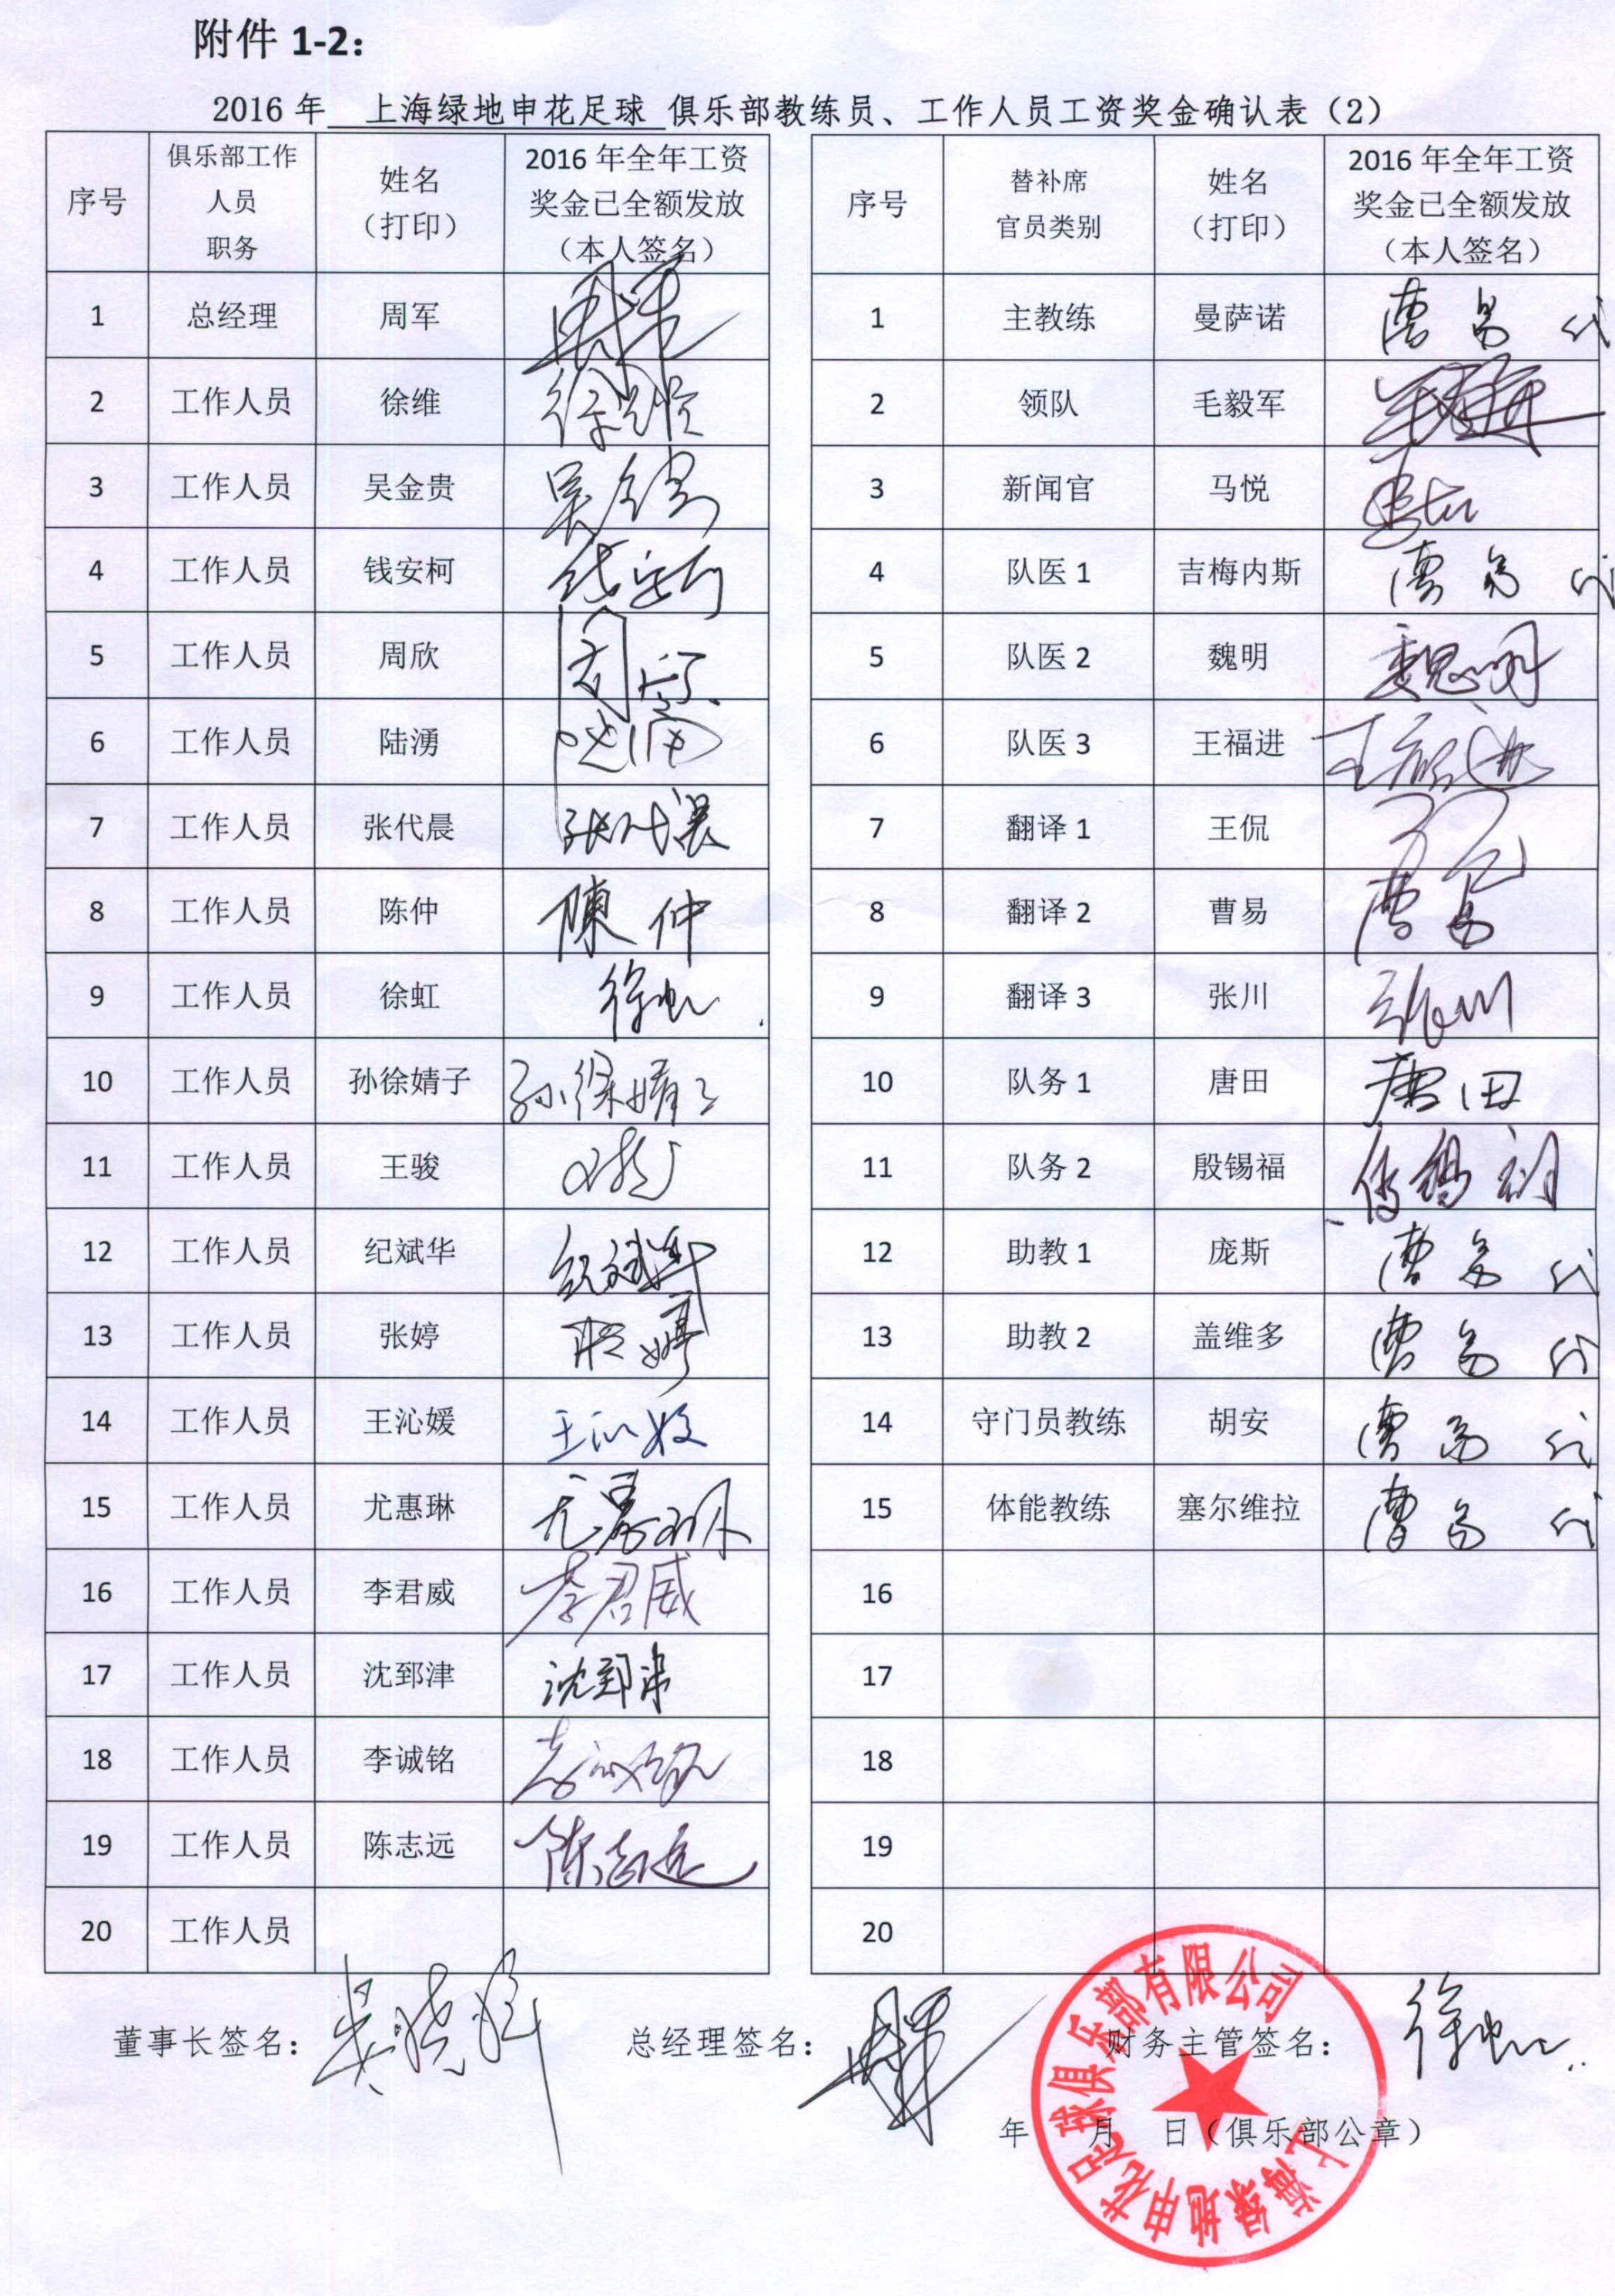 附件 1-2：
2016 年 上海绿地申花足球 俱乐部教练员、工作人员工资奖金确认表（2）
序号 俱乐部工作人员职务 姓名（打印） 2016 年全年工资奖金已全额发放（本人签名）
1 总经理 周军 周军
2 工作人员 徐维 徐维
3 工作人员 吴金贵
4 工作人员 钱安柯 钱安柯
5 工作人员 周欣 周欣
6 工作人员 陆湧
7 工作人员 张代晨 张代晨
8 工作人员 陈仲 陳仲
9 工作人员 徐虹 徐虹
10 工作人员 孙徐婧子 孙徐婧子
11 工作人员 王骏
12 工作人员 纪斌华 纪斌华
13 工作人员 张婷 张婷
14 工作人员 王沁媛 王沁媛
15 工作人员 尤惠琳 尤惠琳
16 工作人员 李君威 李君威
17 工作人员 沈郅津 沈郅津
18 工作人员 李诚铭 李诚铭
19 工作人员 陈志远 陈志远
20 工作人员
序号 替补席官员类别 姓名（打印） 2016 年全年工资奖金已全额发放（本人签名）
1 主教练 曼萨诺 曹易 代
2 领队 毛毅军 毛毅军
3 新闻官 马悦
4 队医 1 吉梅内斯 曹易 代
5 队医 2 魏明 魏明
6 队医 3 王福进 王福进
7 翻译 1 王侃
8 翻译 2 曹易 曹易
9 翻译 3 张川 张川
10 队务 1 唐田 唐田
11 队务 2 殷锡福
12 助教 1 庞斯 曹易 代
13 助教 2 盖维多 曹易 代
14 守门员教练 胡安 曹易 代
15 体能教练 塞尔维拉 曹易 代
16
17
18
19
20
董事长签名： 总经理签名：周军 财务主管签名：徐虹
年 月 日（俱乐部公章）
上海绿地申花足球俱乐部有限公司